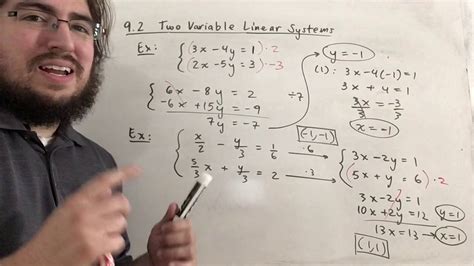 9.2 Two Variable Linear Systems
Ex: { 3x - 4y = 1 ) · 2
{ 2x - 5y = 3 ) · -3
{ 6x - 8y = 2
-6x + 15y = -9
7y = -7 ÷7
y = -1
(1): 3x - 4(-1) = 1
3x + 4 = 1
3x/3 = -3/3
x = -1
(-1,-1)
Ex: { x/2 - y/3 = 1/6 · 6
{ 5/3 x + y/3 = 2 · 3
{ 3x - 2y = 1
(5x + y = 6) · 2
3x - 2y = 1
10x + 2y = 12
13x = 13 → x = 1
y = 1
(1,1)